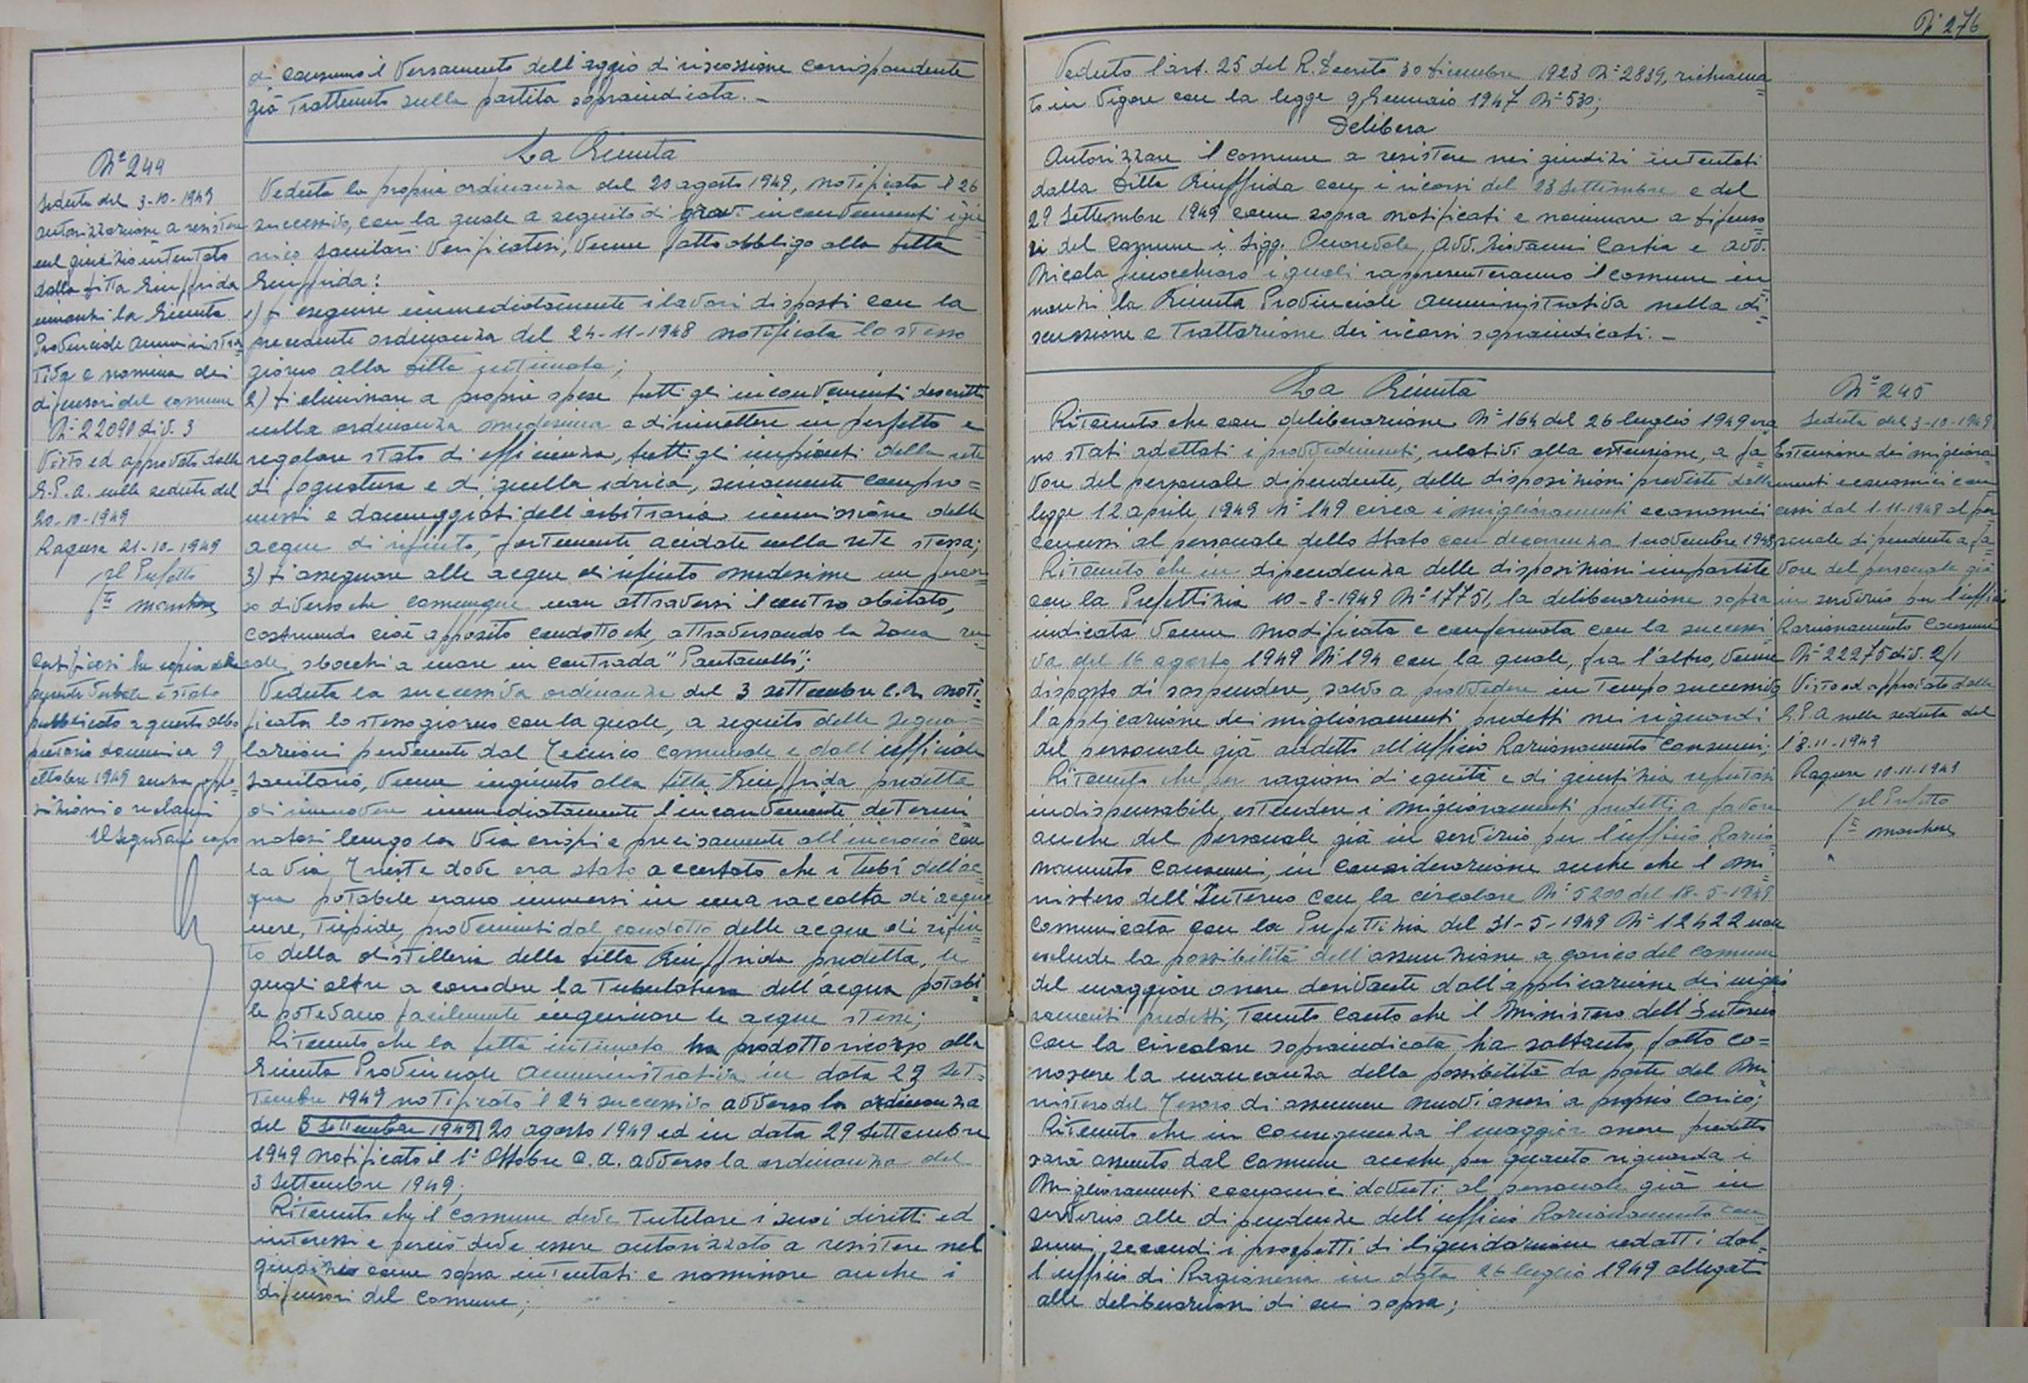 N° 276
di consumo il versamento dell'aggio di riscossione corrispondente
già trattenuto sulla partita sopraindicata. _
N° 244
Seduta del 3-10-1949
autorizzazione a resistere
nel giudizio intentato
dalla ditta Giuffrida
innanzi la Giunta
Provinciale Amministra-
tiva e nomina dei
difensori del comune
N° 22090 div. 3
Visto ed approvato dalla
G.P.A. nella seduta del
20-10-1949
Ragusa 21-10-1949
Il Prefetto
Certificasi che copia del
presente verbale è stato
pubblicato a questo albo
pretorio domenica 9
ottobre 1949 senza oppo-
sizioni o reclami
Il Segretario capo
La Giunta
Veduta la propria ordinanza del 20 agosto 1949, notificata il 26
successivo, con la quale a seguito di gravi inconvenienti igie
nico sanitari verificatesi, venne fatto obbligo alla ditta
Giuffrida:
1) di eseguire immediatamente i lavori disposti con la
precedente ordinanza del 24-11-1948 notificata lo stesso
giorno alla ditta intimata;
2) di eliminare a proprie spese tutti gli inconvenienti descritti
nella ordinanza medesima e di rimettere in perfetto e
regolare stato di efficienza, tutti gli impianti della rete
di fognatura e di quella idrica, seriamente compro=
messi e danneggiati dell'arbitraria immissione delle
acque di rifiuto, fortemente acidate nella rete stessa;
3) di assegnare alle acque di rifiuto medesime un percor=
so diverso che comunque non attraversi il centro abitato,
costruendo cioè apposito condotto che, attraversando la zona ru
rale, sbocchi a mare in contrada "Pantanelli";
Veduta la successiva ordinanza del 3 settembre c.a. noti
ficata lo stesso giorno con la quale, a seguito delle segna=
lazioni pervenute dal Tecnico comunale e dall'ufficiale
sanitario, venne ingiunto alla ditta Giuffrida predetta
di rimuovere immediatamente l'inconveniente determi
natosi lungo la via Crispi e precisamente all'incrocio con
la via Trieste dove era stato accertato che i tubi dell'ac=
qua potabile erano immersi in una raccolta di acque
nere, tiepide, provenienti dal condotto delle acque di rifiu=
to della distilleria della ditta Giuffrida predetta, le
quali oltre a corrodere la tubolatura dell'acqua potabi=
le potevano facilmente inquinare le acque stesse;
Ritenuto che la ditta intimata ha prodotto ricorso alla
Giunta Provinciale Amministrativa in data 23 set-
tembre 1949 notificato il 24 successivo avverso la ordinanza
del 3 settembre 1949 20 agosto 1949 ed in data 29 settembre
1949 notificato il 1° ottobre c.a. avverso la ordinanza del
3 settembre 1949;
Ritenuto che il comune deve tutelare i suoi diritti ed
interessi e perciò deve essere autorizzato a resistere nel
giudizio come sopra intentati e nominare anche i
difensori del comune;
Veduto l'art. 25 del R. Decreto 30 dicembre 1923 N° 2839, richiama
to in vigore con la legge 9 Gennaio 1947 N° 530;
Delibera
Autorizzare il comune a resistere nei giudizi intentati
dalla ditta Giuffrida con i ricorsi del 23 settembre e del
29 settembre 1949 come sopra notificati e nominare a difenso=
ri del comune i Sigg. Onorevole Avv. Giovanni Cartia e avv.
Nicola Finocchiaro i quali rappresenteranno il comune in
nanzi la Giunta Provinciale amministrativa nella di=
scussione e trattazione dei ricorsi sopraindicati. _
La Giunta
Ritenuto che con deliberazione N° 164 del 26 luglio 1949 era
no stati adottati i provvedimenti, relativi alla estensione, a fa=
vore del personale dipendente, delle disposizioni previste dalla
legge 12 aprile 1949 N° 149 circa i miglioramenti economici
concessi al personale dello Stato con decorrenza 1 novembre 1948;
Ritenuto che in dipendenza delle disposizioni impartite
con la Prefettizia 10-8-1949 N° 17751, la deliberazione sopra
indicata venne modificata e confermata con la successi=
va del 16 agosto 1949 N° 194 con la quale, fra l'altro, venne
disposto di sospendere, salvo a provvedere in tempo successivo
l'applicazione dei miglioramenti predetti nei riguardi
del personale già addetto all'ufficio Razionamento Consumi;
Ritenuto che per ragioni di equità e di giustizia reputasi
indispensabile estendere i miglioramenti predetti a favore
anche del personale già in servizio per l'ufficio Razio=
namento Consumi, in considerazione anche che il Mi=
nistero dell'Interno con la circolare N° 5200 del 18-5-1949
comunicata con la Prefettizia del 31-5-1949 N° 12422 non
esclude la possibilità dell'assunzione a carico del comune
del maggiore onere derivante dall'applicazione dei miglio
ramenti predetti, tenuto conto che il Ministero dell'Interno
con la circolare sopraindicata ha soltanto fatto co=
noscere la mancanza della possibilità da parte del Mi=
nistero del Tesoro di assumere nuovi oneri a proprio carico;
Ritenuto che in conseguenza il maggior onere predetto
sarà assunto dal comune anche per quanto riguarda i
miglioramenti economici dovuti al personale già in
servizio alle dipendenze dell'ufficio Razionamento con=
sumi, secondo i prospetti di liquidazione redatti dal=
l'ufficio di Ragioneria in data 26 luglio 1949 allegati
alle deliberazioni di cui sopra;
N° 245
Seduta del 3-10-1949
Estensione dei migliora=
menti economici con
cessi dal 1-11-1948 al per=
sonale dipendente a fa=
vore del personale già
in servizio per l'ufficio
Razionamento Consumi
N° 22275 div. 2/1
Visto ed approvato dalla
G.P.A. nella seduta del
l'8-11-1949
Ragusa 10-11-1949
Il Prefetto